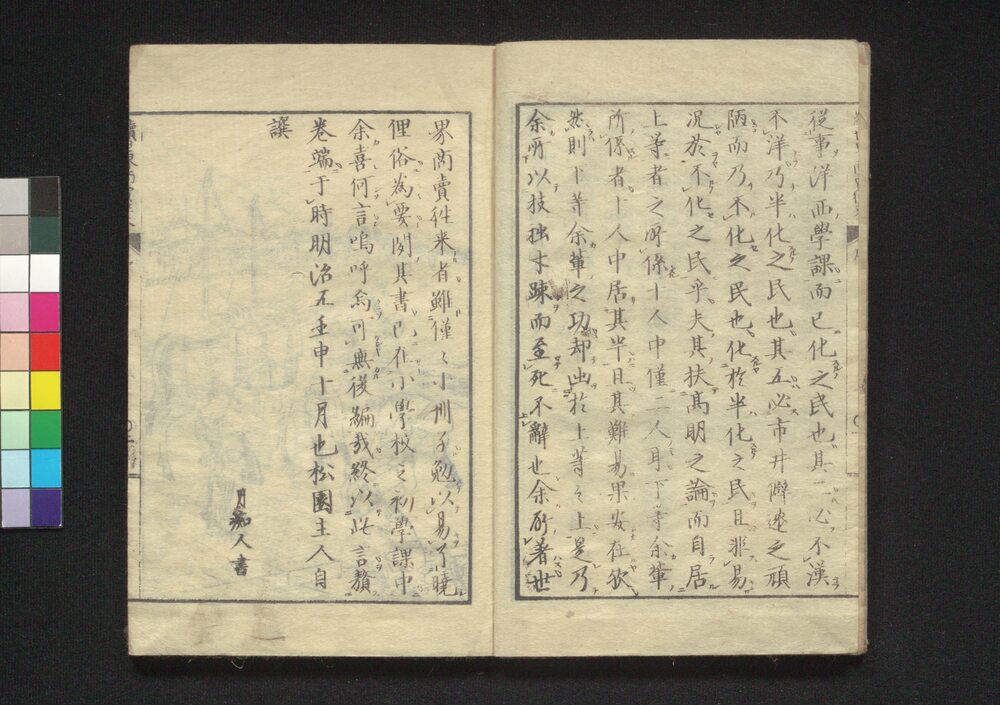 從事洋西學課而已化之民也其二必不漢
不洋乃半化之民也其五必市井僻遠之頑
陋而乃不化之民也化於半化之民且非易
況於不化之民乎夫其扶高明之論而自居
上等者之所係十人中僅二人耳下等余輩
所係者十人中居其半且其難易果安在歟
然則下等余輩之功却出於上等之上是乃
余所以技拙才踈而至死不辭也余所著世
界商賣往来者雖僅々小冊子勉以易了曉
俚俗為要聞其書已在小學校之初學課中
余喜何言嗚呼烏可無後編哉終以此言贅
巻端于時明治五壬申十月也松園主人自
譔
月痴人書